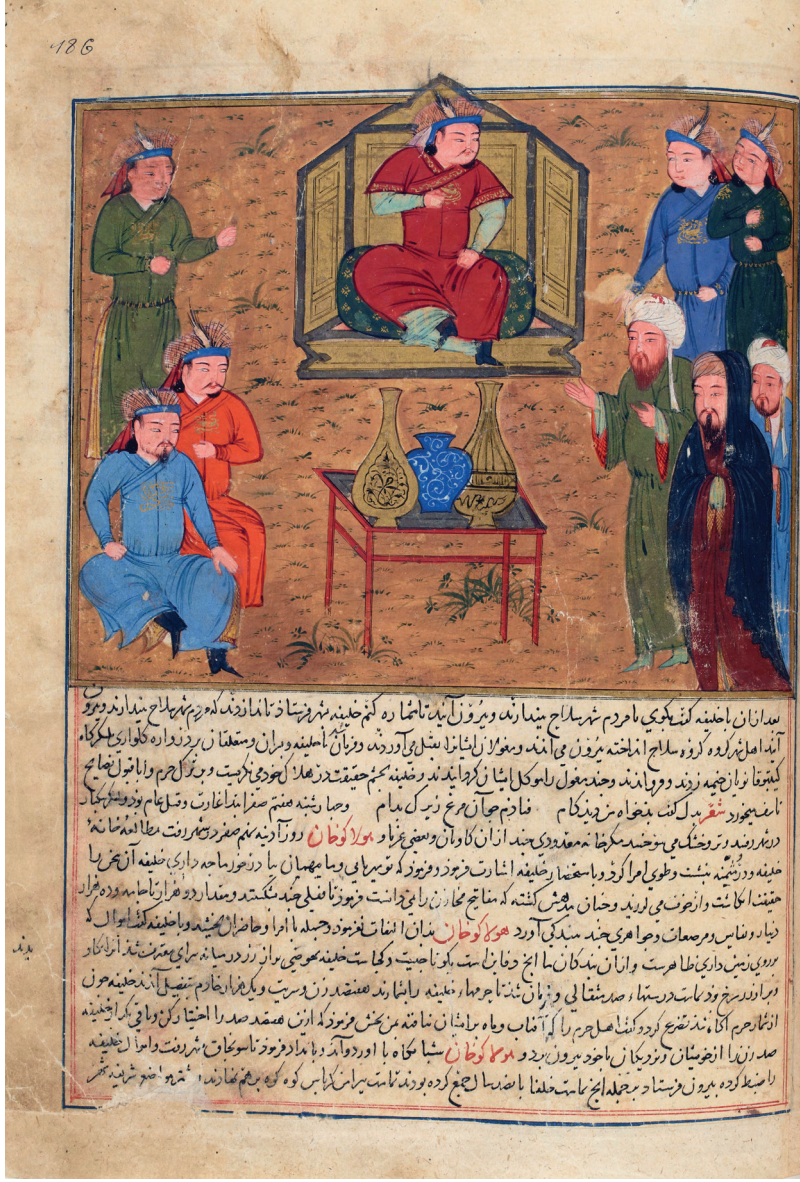 186
بعد ازان با خلیفه گفت بگوی تا مردم شهر سلاح بیندازند و بیرون آیند تا شماره کنم خلیفه بشهر فرستاد تا ندا زدند که مردم شهر سلاح بیندازند و بیرون
آیند اهل شهر گروه گروه سلاح انداخته بیرون می آمدند و مغولان ایشانرا بقتل می آوردند و فرمان شد تا خلیفه و پسران و متعلقان بر دروازه کلواذی بلشکرگاه
کیتبوقا نویان خیمه زدند و فرو آمدند و چند مغول را موکل ایشان گردانیدند و خلیفه بچشم حقیقت در هلاک خود می نگریست و بر ترک حزم و ابا قبول نصایح
تاسف میخورد شعر بدل گفت بدخواه من دید کام فتادم چو آن مرغ زیرک بدام و چهارشنبه هفتم صفر ابتدا غارت و قتل عام بود و لشکر یکبار
در شهر رفتند و تر و خشک می سوختند مگر خانه معدودی چند از ارکاونان و بعضی غربا و هولاکوخان روز آدینه نهم صفر در شهر رفت بمطالعه خانه
خلیفه و در مثمنه بنشست و طوی امرا کرد و باستحضار خلیفه اشارت فرمود و فرمود که تو میزبانی و ما مهمان بیا در خور ما چه داری خلیفه آن سخن را
حقیقت انگاشت و از خوف می لرزید و چنان مدهش گشته که مفاتیح مخازن را نمی دانست فرمود تا قفلی چند بشکستند و مقدار دو هزار تا جامه و ده هزار
دینار و نفایس و مرصعات و جواهری چند ببندگی آورد هولاکوخان بدان التفات نفرمود و جمله با امرا و حاضران بخشید و با خلیفه گفت اموال که
بر روی زمین داری ظاهرست و ازان بندگان ما انچ دفاین است بگو تا چیست و کجاست خلیفه بحوضی پر از زر در میانه سرای معترف شد آنرا بکاویدند
و پر از زر سرخ بود تمامت درستهاء صد مثقالی و فرمان شد تا حرمهاء خلیفه را بشمارند هفتصد زن و سریت و یکهزار خادم بتفصیل آمدند خلیفه چون
از شمار حرم آگاه شد تضرع کرد و گفت اهل حرم را که آفتاب و ماه بر ایشان نتافته بمن بخش فرمود که ازین هفتصد صد را اختیار کن و باقی بگذار خلیفه
صد زن را از خویشان و نزدیکان با خود بیرون برد و هولاکوخان شبانگاه با اردو آمد و بامداد فرمود تا سونجاق بشهر رفت و اموال خلیفه
را ضبط کرده بیرون فرستاد بر جمله انچ تمامت خلفا بپانصد سال جمع کرده بودند تمامت پیرامن کریاس کوه کوه بر هم نهادند و بیشتر مواضع شریفه شهر